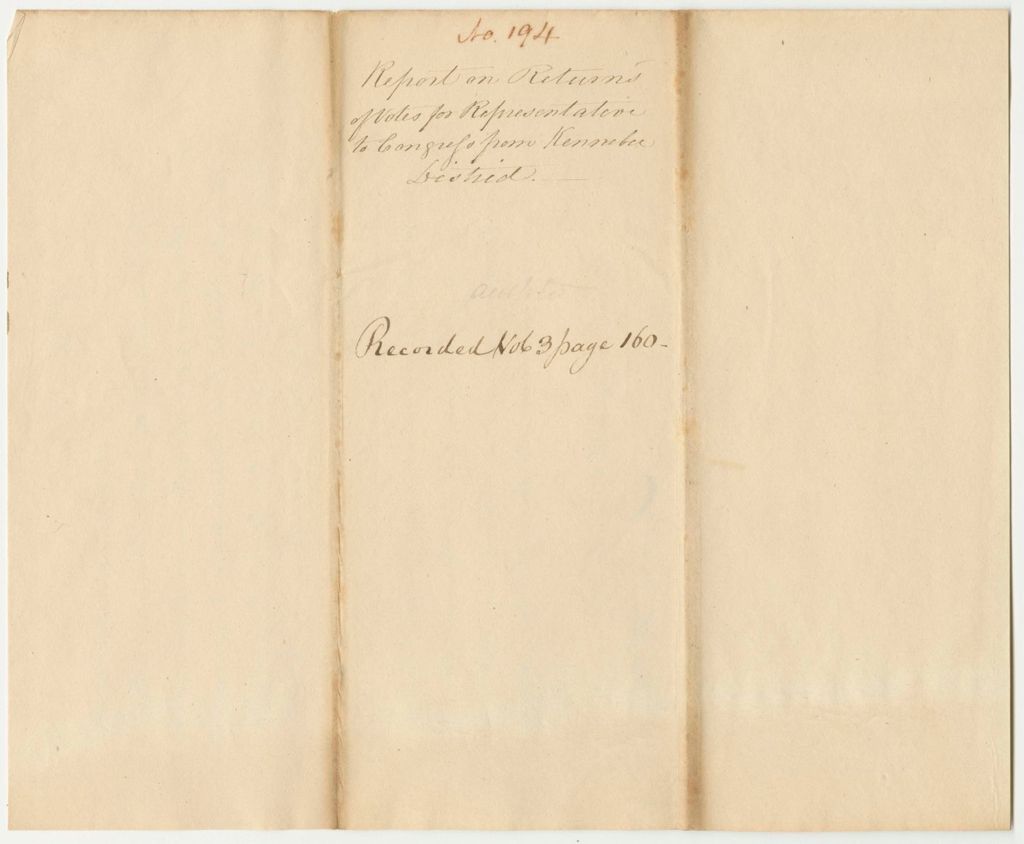 No. 194
Report on Returns
of Votes for Representative
to Congress from Kennebec
District. —
Recorded Vol 3 page 160 -